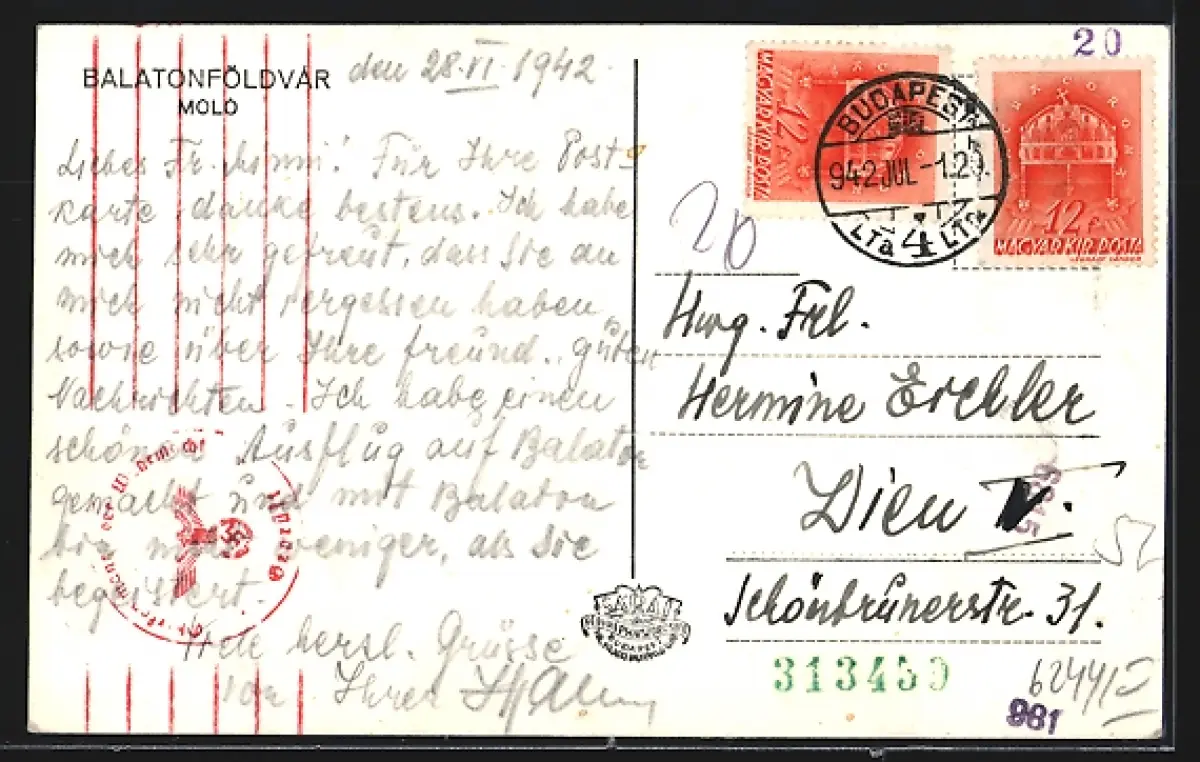 BALATONFÖLDVÁR
MOLÓ
den 28.VI.1942
Liebes Fr. Minni! Für Ihre Post-
karte danke bestens. Ich habe
mich sehr gefreut, dass Sie an
mich nicht vergessen haben,
sowie über Ihre freund. guten
Nachrichten. Ich habe einen
schönen Ausflug auf Balaton
gemacht und mit Balaton
bin nicht weniger, als Sie
begeistert.
herzl. Grüsse
von Ihrer
20
MAGYAR KIR. POSTA
12 f
BUDAPEST
942 JUL -1. 20
4
MAGYAR KIR. POSTA
12 f
20
Hwg. Frl.
Hermine Eichler
Wien V.
Schönbrunerstr. 31.
52
BUDAPEST
313450
6244/
981